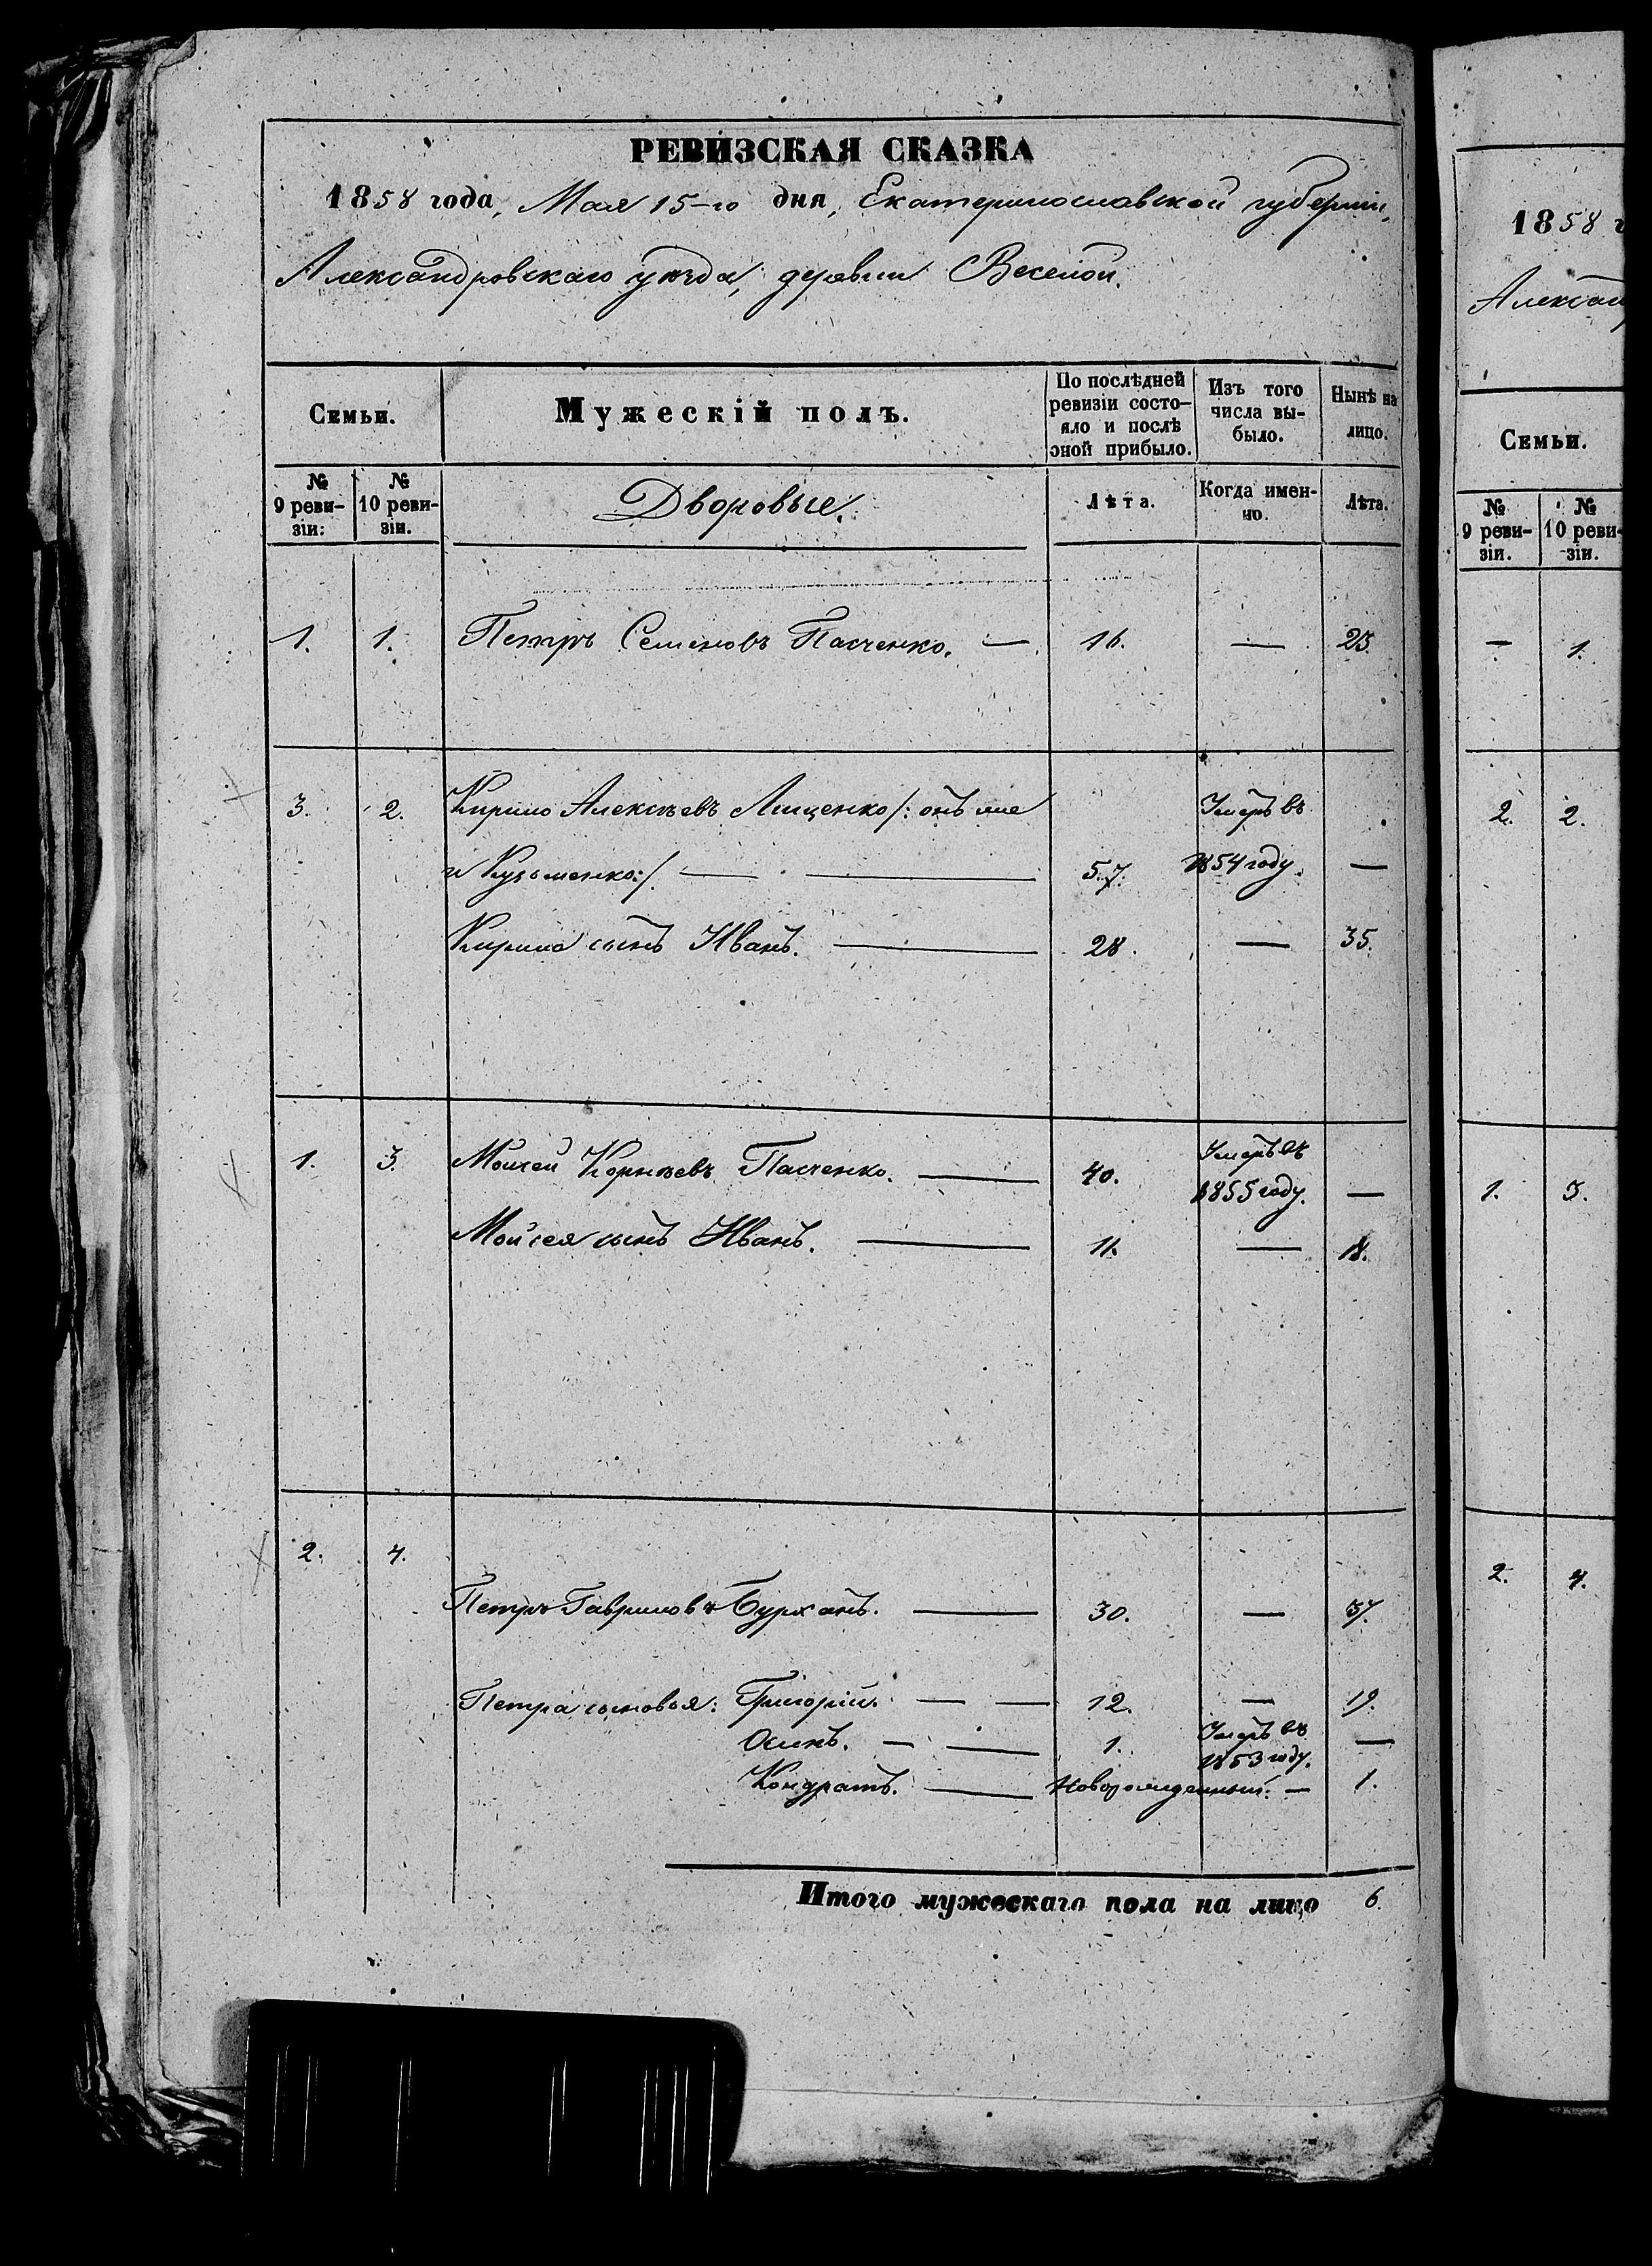 РЕВИЗСКАЯ СКАЗКА
1858 года, Мая 15-го дня, Екатеринославской губерніи,
Александровскаго уѣзда, деревни Веселой.
Семьи.
Мужескій полъ.
По послѣдней ревизіи состояло и послѣ оной прибыло.
Изъ того числа выбыло.
Нынѣ на лицо.
№ 9 ревизіи:
№ 10 ревизіи.
Дворовые.
Лѣта.
Когда именно.
Лѣта.
1. 1. Петръ Семеновъ Пасченко. — 16. — 23.
3. 2. Кирило Алексѣевъ Лищенко /: онъ же Умеръ въ
и Кузьменко:/. — 57. 1854 году. —
Кирила сынъ Иванъ. — 28. — 35.
1. 3. Моисей Корнѣевъ Пасченко. — 40. Умеръ въ 1855 году. —
Мойсея сынъ Иванъ. — 11. — 18.
2. 4.
Петръ Гавриловъ Бурханъ. — 30. — 37.
Петра сыновья: Григорій. — — 12. — 19.
Осипъ. — — 1. Умеръ въ 1853 году. —
Кондратъ. — Новорожденный. — 1.
Итого мужескаго пола на лицо 6.
1858 г
Александ
Семьи.
№ 9 ревизіи.
№ 10 ревизіи.
— 1.
2. 2.
1. 3.
2. 4.